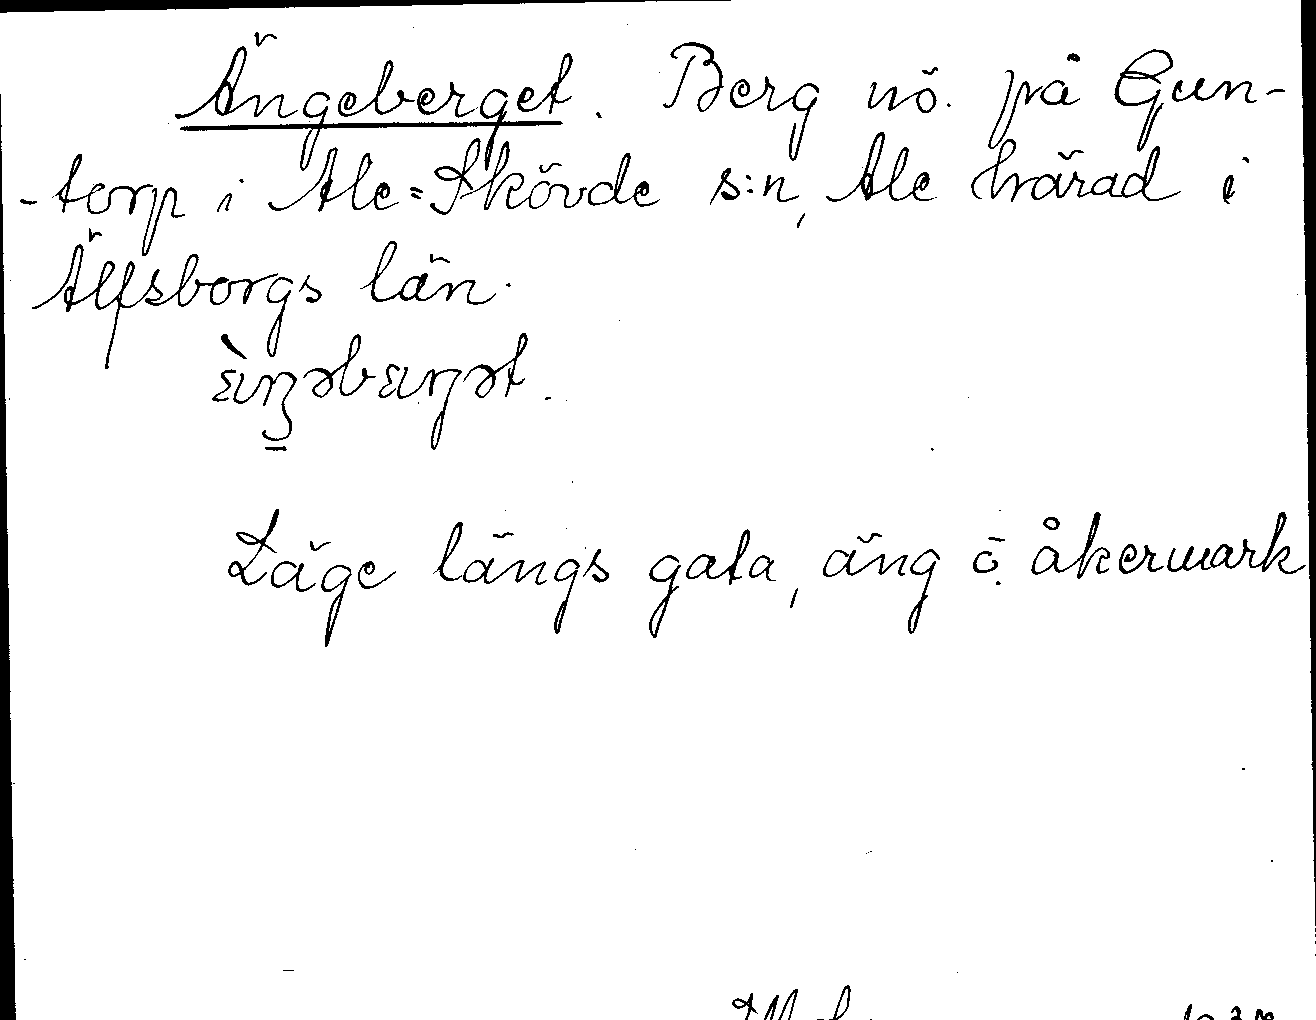 Ängeberget. Berg nö. på Gun-
-torp i Ale=Skövde s:n, Ale härad i
Älfsborgs län.
Läge längs gata, äng o. åkermark